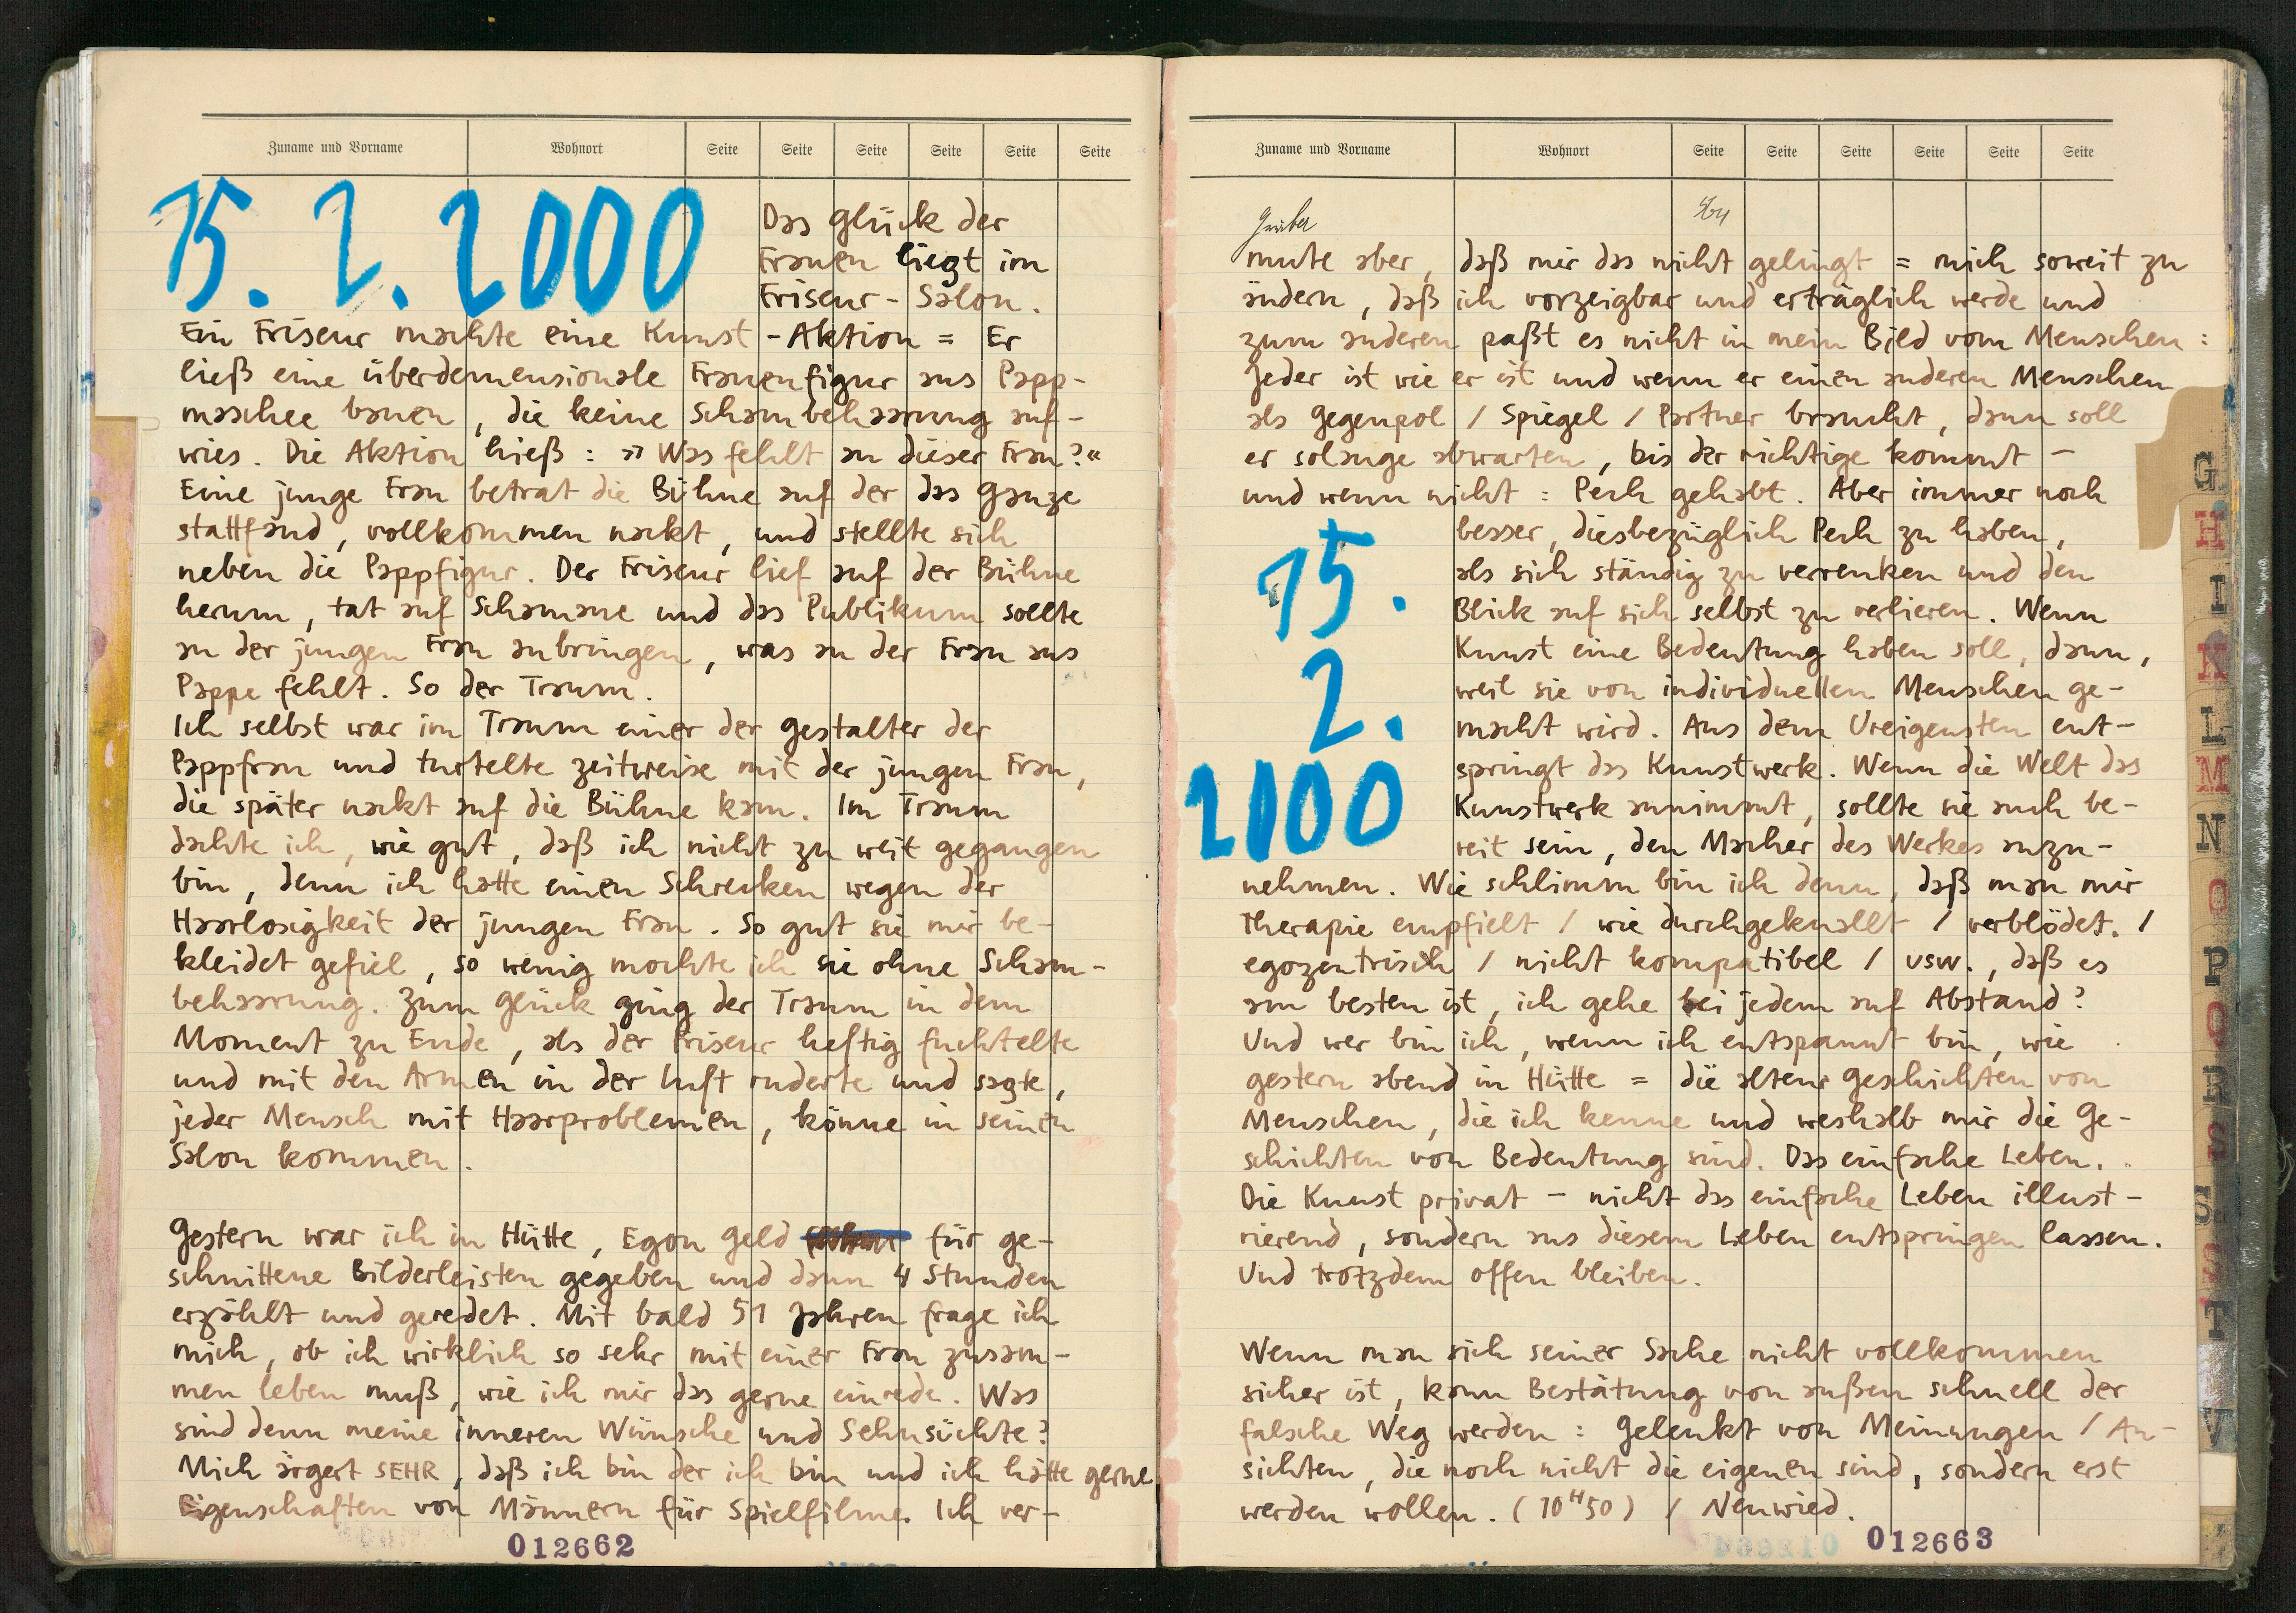 Zuname und Vorname Wohnort Seite Seite Seite Seite Seite Seite
15. 2. 2000
Das Glück der
Frauen liegt im
Friseur-Salon.
Ein Friseur machte eine Kunst-Aktion = Er
ließ eine überdemensionale Frauenfigur aus Papp-
maschee bauen, die keine Schambehaarung auf-
wies. Die Aktion hieß: »Was fehlt an dieser Frau?«
Eine junge Frau betrat die Bühne auf der das Ganze
stattfand, vollkommen nackt, und stellte sich
neben die Pappfigur. Der Friseur lief auf der Bühne
herum, tat auf Schamane und das Publikum sollte
an der jungen Frau anbringen, was an der Frau aus
Pappe fehlt. So der Traum.
Ich selbst war im Traum einer der Gestalter der
Pappfrau und turtelte zeitweise mit der jungen Frau,
die später nackt auf die Bühne kam. Im Traum
dachte ich, wie gut, daß ich nicht zu weit gegangen
bin, denn ich hatte einen Schrecken wegen der
Haarlosigkeit der jungen Frau. So gut sie mir be-
kleidet gefiel, so wenig mochte ich sie ohne Scham-
behaarung. Zum Glück ging der Traum in dem
Moment zu Ende, als der Friseur heftig fuchtelte
und mit den Armen in der Luft ruderte und sagte,
jeder Mensch mit Haarproblemen, könne in seinen
Salon kommen.
Gestern war ich in Hütte, Egon Geld für ge-
schnittene Bilderleisten gegeben und dann 4 Stunden
erzählt und geredet. Mit bald 51 Jahren frage ich
mich, ob ich wirklich so sehr mit einer Frau zusam-
men leben muß, wie ich mir das gerne einrede. Was
sind denn meine inneren Wünsche und Sehnsüchte?
Mich ärgert SEHR, daß ich bin der ich bin und ich hätte gerne
Eigenschaften von Männern für Spielfilme. Ich ver-
012662
Zuname und Vorname Wohnort Seite Seite Seite Seite Seite Seite
mute aber, daß mir das nicht gelingt = mich soweit zu
ändern, daß ich vorzeigbar und erträglich werde und
zum anderen paßt es nicht in mein Bild vom Menschen:
Jeder ist wie er ist und wenn er einen anderen Menschen
als Gegenpol / Spiegel / Partner braucht, dann soll
er solange abwarten, bis der richtige kommt –
und wenn nicht: Pech gehabt. Aber immer noch
15.
2.
2000
besser, diesbezüglich Pech zu haben,
als sich ständig zu verrenken und den
Blick auf sich selbst zu verlieren. Wenn
Kunst eine Bedeutung haben soll, dann,
weil sie von individuellen Menschen ge-
macht wird. Aus dem Ureigensten ent-
springt das Kunstwerk. Wenn die Welt das
Kunstwerk annimmt, sollte sie auch be-
reit sein, den Macher des Werkes anzu-
nehmen. Wie schlimm bin ich denn, daß man mir
Therapie empfielt / wie durchgeknallt / verblödet. /
egozentrisch / nicht kompatibel / usw., daß es
am besten ist, ich gehe bei jedem auf Abstand?
Und wer bin ich, wenn ich entspannt bin, wie
gestern abend in Hütte = die alten Geschichten von
Menschen, die ich kenne und weshalb mir die Ge-
schichten von Bedeutung sind. Das einfache Leben.
Die Kunst privat – nicht das einfache Leben illust-
rierend, sondern aus diesem Leben entspringen lassen.
Und trotzdem offen bleiben.
Wenn man sich seiner Sache nicht vollkommen
sicher ist, kann Bestätung von außen schnell der
falsche Weg werden: Gelenkt von Meinungen / An-
sichten, die noch nicht die eigenen sind, sondern erst
werden wollen. (10H50) / Neuwied.
012663
G
H
I
K
L
M
N
O
P
Q
R
S
S
T
V